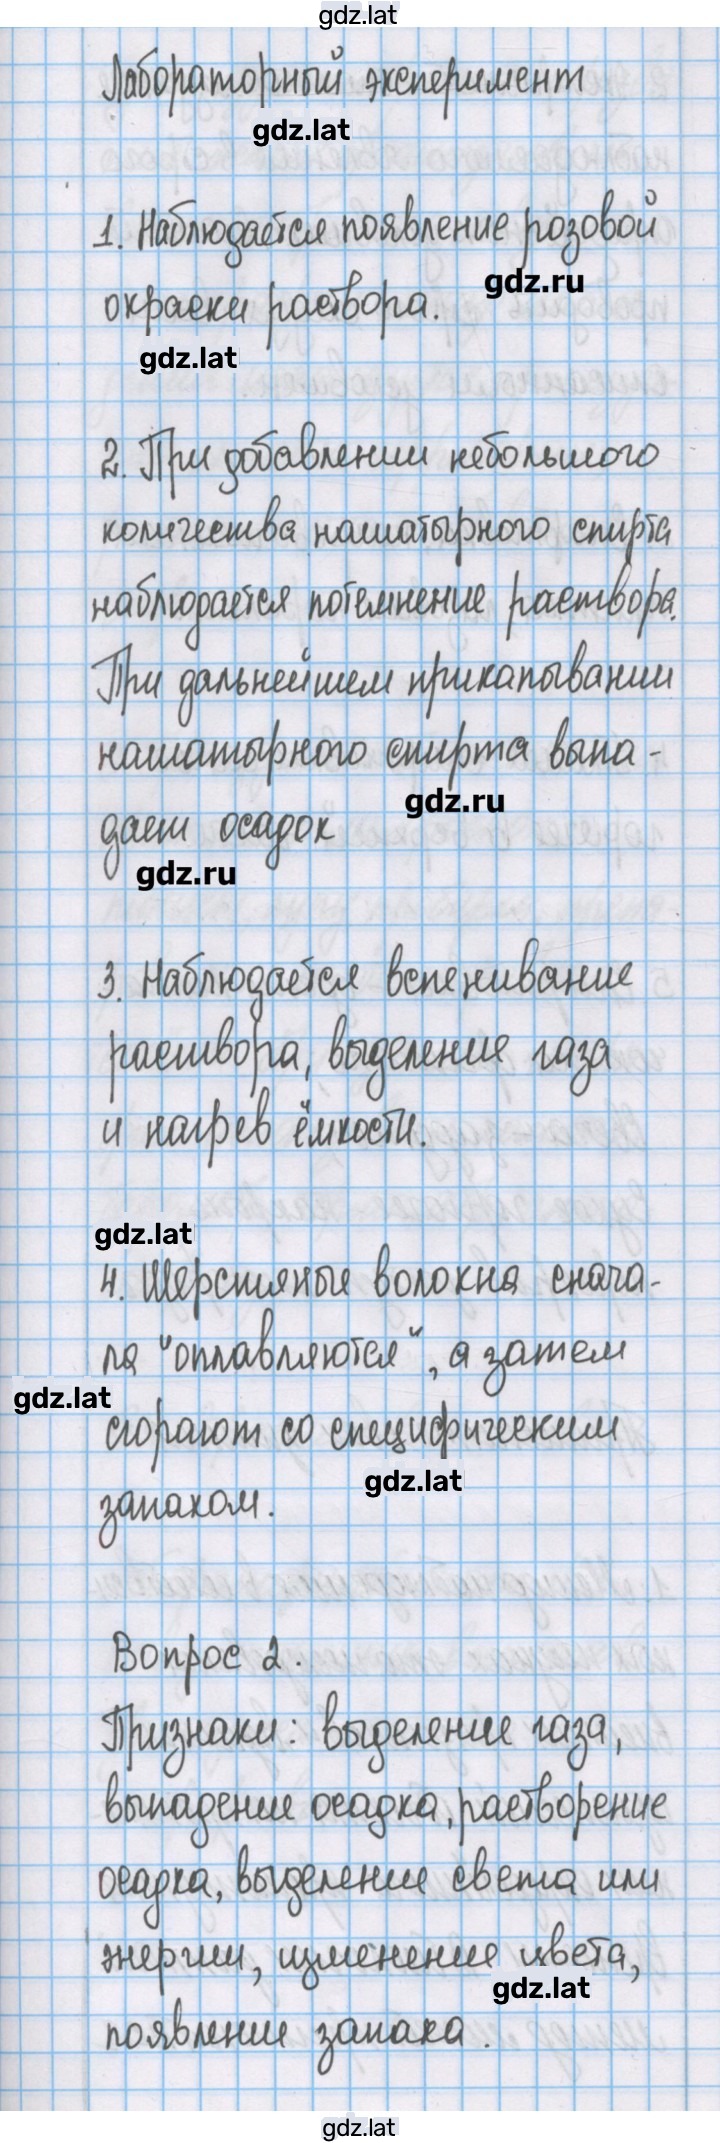 gdz.lat
Лабораторный эксперимент
gdz.lat
1. Наблюдается появление розовой
gdz.ru
окраски раствора.
gdz.lat
2. При добавлении небольшого
количества нашатырного спирта
наблюдается потемнение раствора.
При дальнейшем прикапывании
нашатырного спирта выпа-
gdz.ru
дает осадок
gdz.ru
3. Наблюдается вспенивание
раствора, выделение газа
и нагрев ёмкости.
gdz.lat
4. Шерстяные волокна снача-
ла "оплавляются", а затем
gdz.lat
сгорают со специфическим
gdz.lat
запахом.
Вопрос 2.
Признаки: выделение газа,
выпадение осадка, растворение
осадка, выделение света или
энергии, изменение цвета,
gdz.lat
появление запаха.
gdz.lat